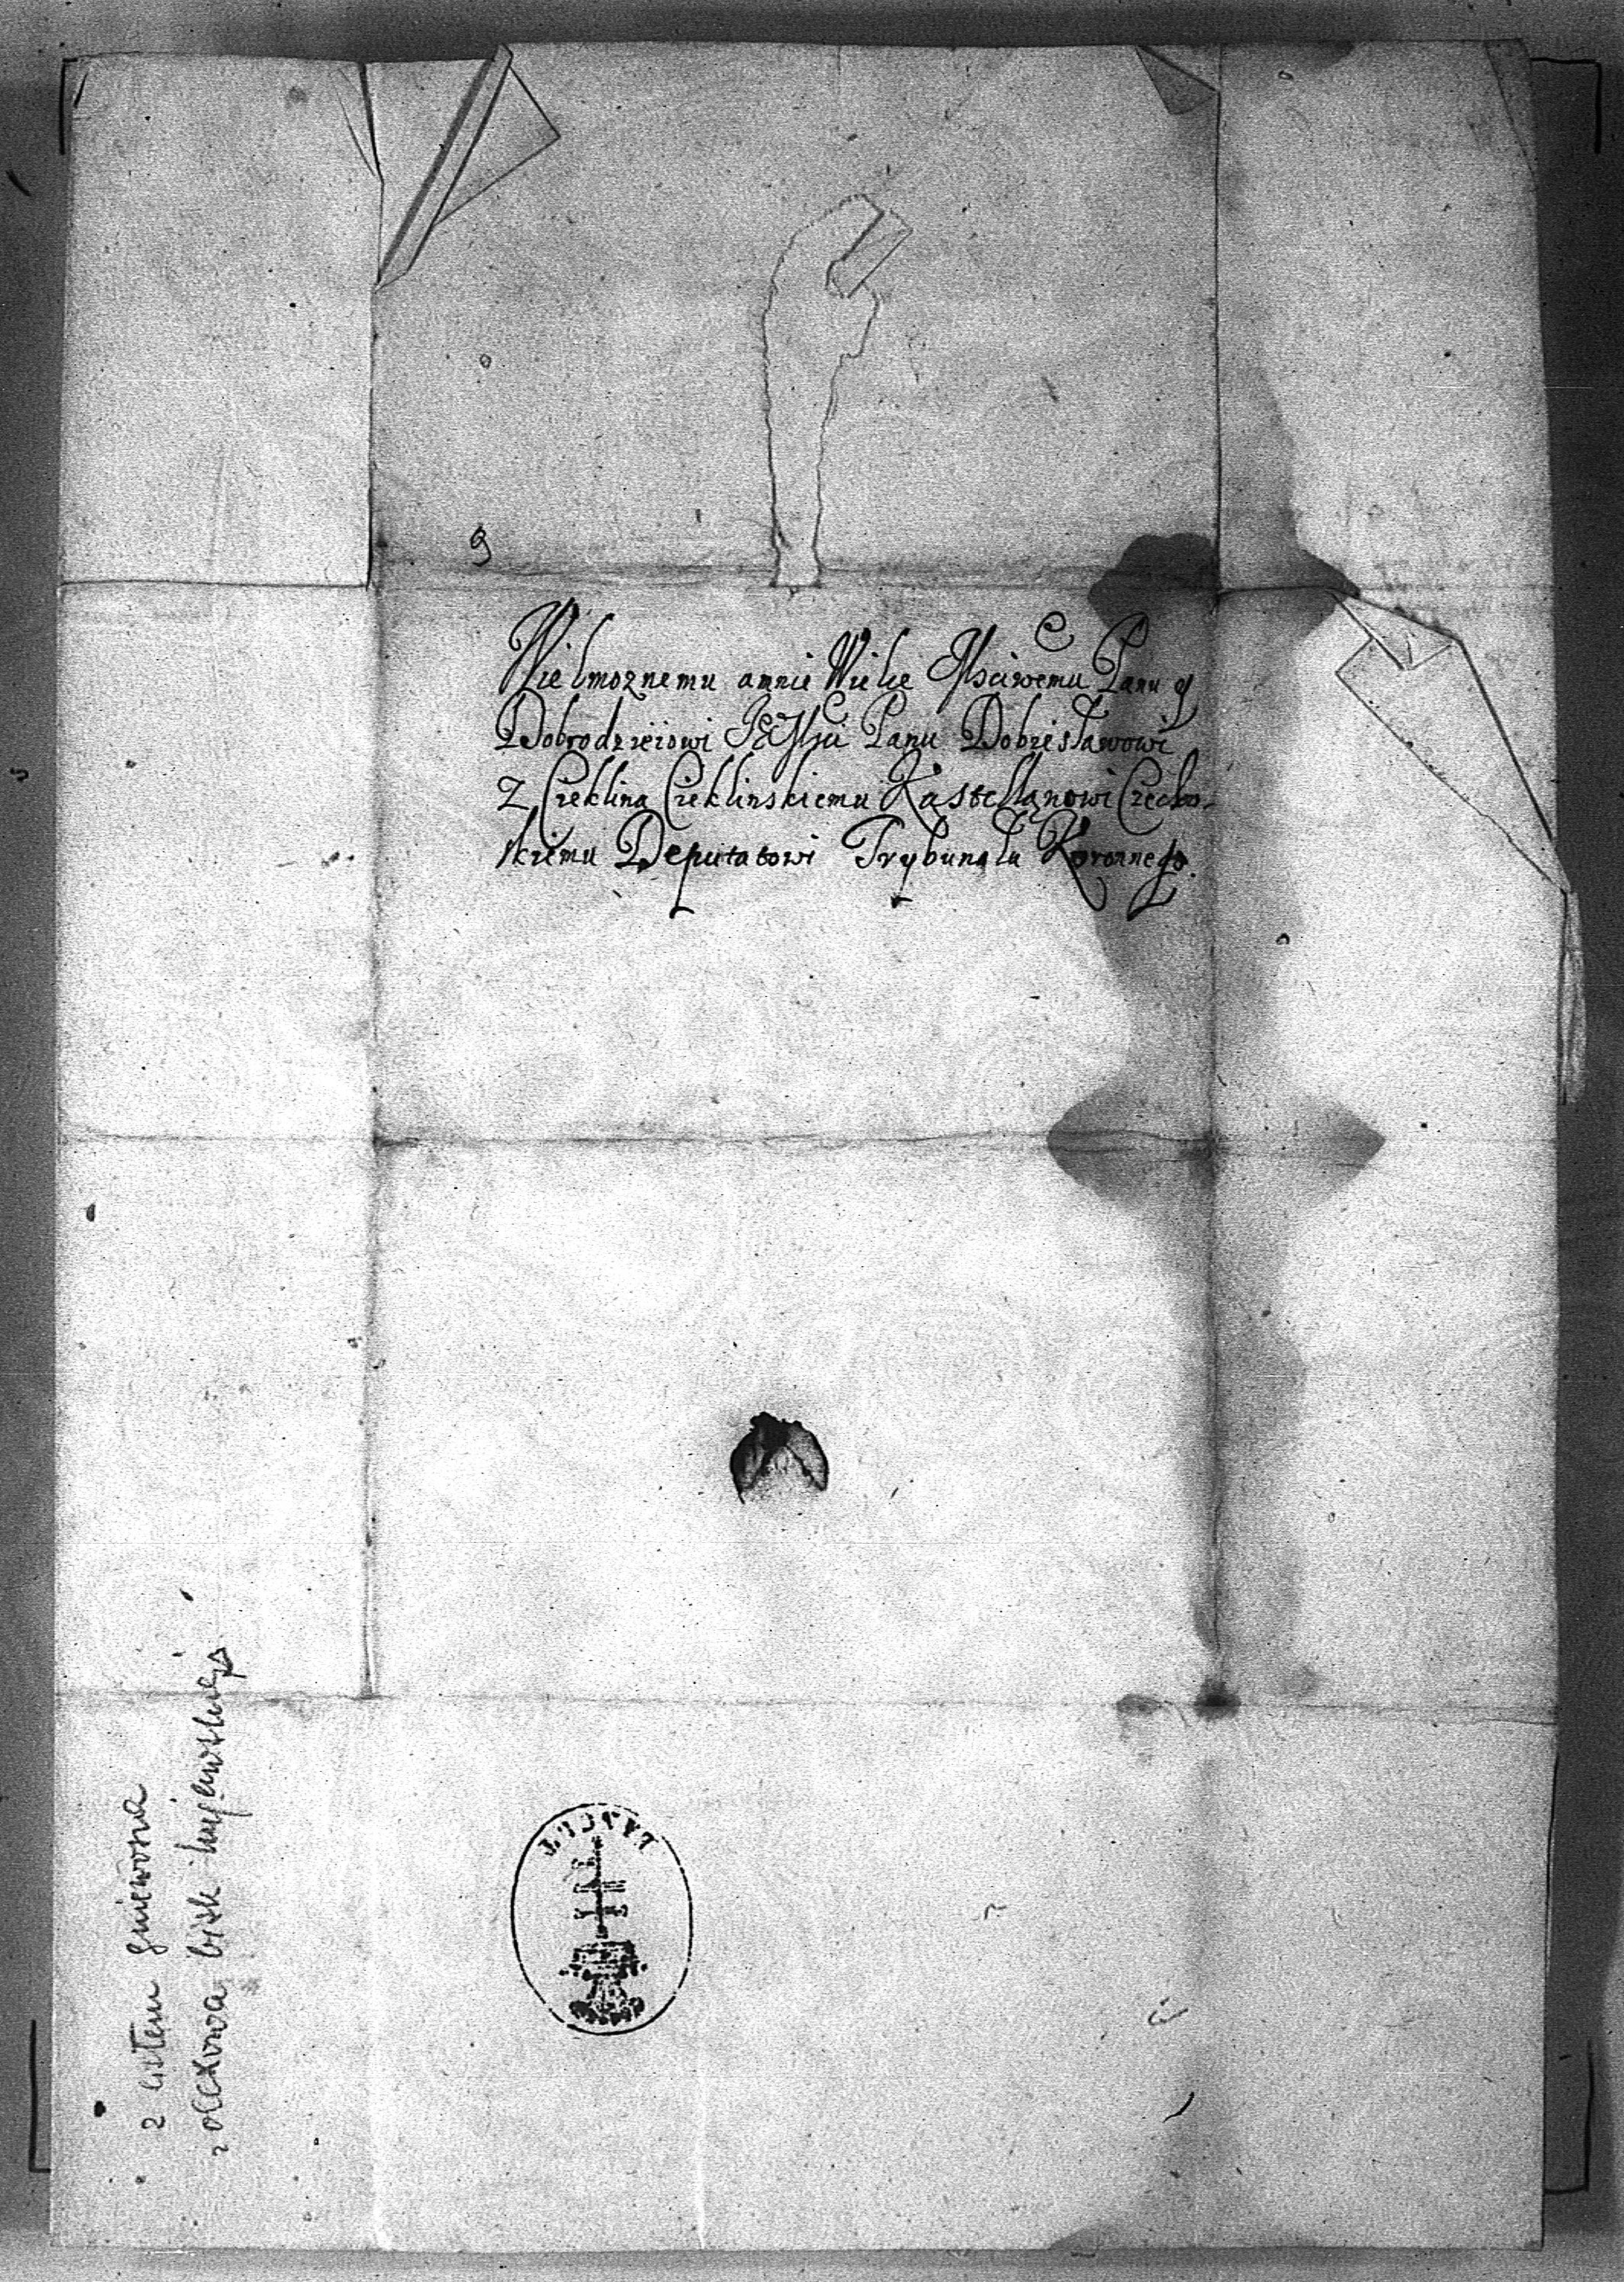 9
Wielmoznemu amnie Wielce Mściwemu Panu y
Dobrodzieiowi JE° Mści Panu Dobiesławowi
Z Cieklina Cieklinskiemu Kasztellanowi Czecho-
skiemu Deputatowi Trybunału Koronnego.
z listem gniewosza
z Olexowa bisk kujawskiego